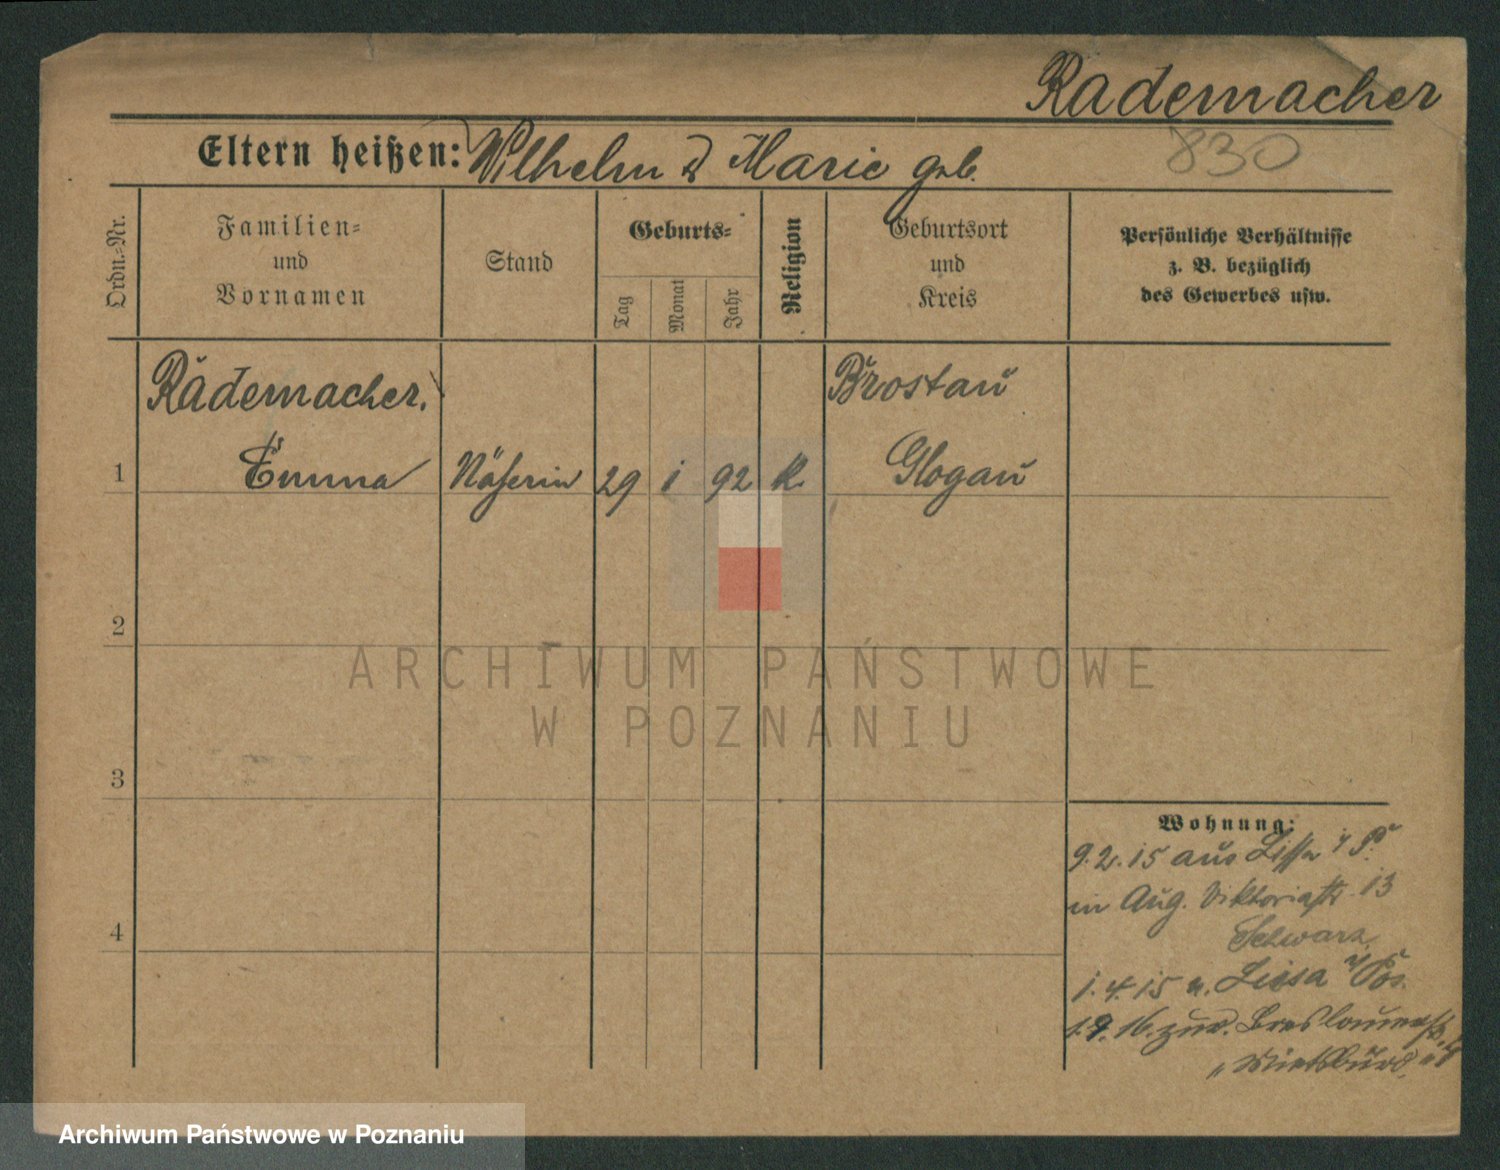 Rademacher
830
Eltern heißen: Wilhelm u Marie geb.
Ordn.-Nr.
Familien-
und
Vornamen
Stand
Geburts-
Tag
Monat
Jahr
Religion
Geburtsort
und
Kreis
Persönliche Verhältnisse
z. B. bezüglich
des Gewerbes usw.
Rademacher.
Brostau
1 Emma Näherin 29 1 92 K. Glogau
2
3
4
Wohnung:
9.2.15 aus Lissa i/P.
in Aug. Viktoriastr. 13
Schwarz
1.4.15 n. Lissa i/Pos.
1.9.16. zur. Breslauerstr.
ARCHIWUM PAŃSTWOWE
W POZNANIU
Archiwum Państwowe w Poznaniu